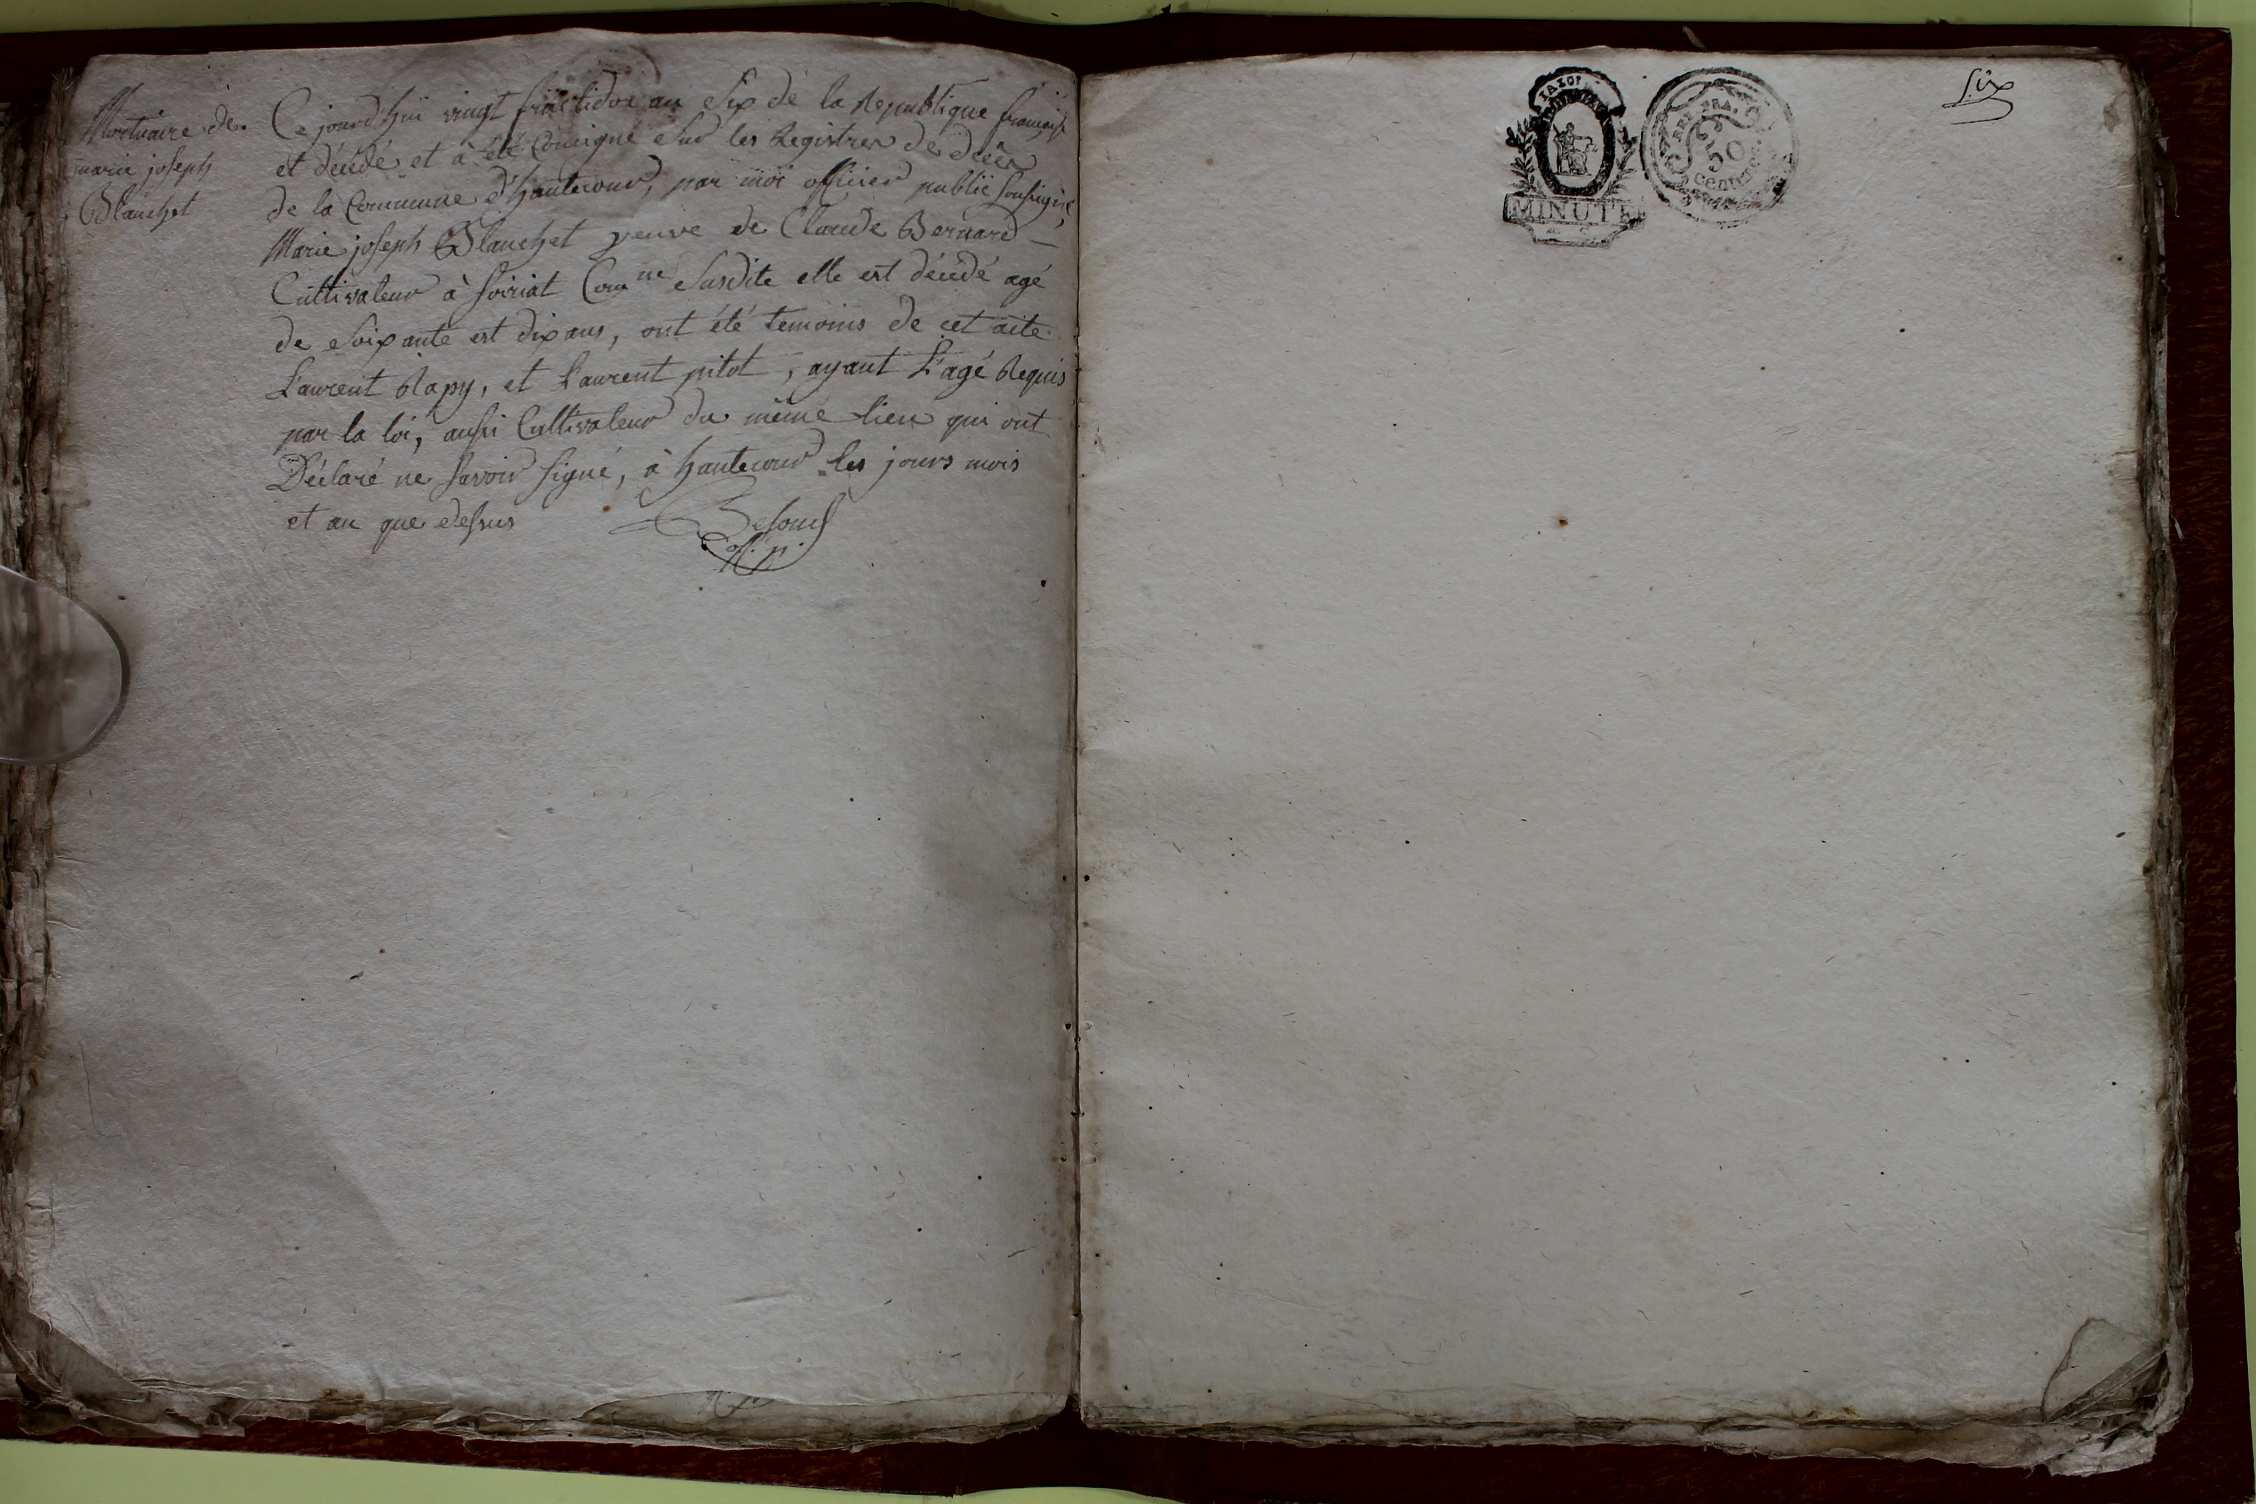 Mortuaire de
marie joseph
Blanchet
Ce jourd'hui vingt fructidor an Six de la Republique francaise
et décédé et à été Consigné Sur les Registres de décès
de la Commune d'hautecour, par moi officier public soussigné,
Marie joseph Blanchet veuve de Claude Bernard
Cultivateur à soiriat Comne Susdite elle est décédé agé
de Soixante et dix ans, ont été temoins de cet acte
Laurent Rapy, et Laurent pitot, ayant L'agé Requis
par la loi, aussi Cultivateur du même lieu qui ont
Déclaré ne savoir signé, à hautecour les jours mois
et an que dessus
off. p.
MINUTE
50
centimes
Six